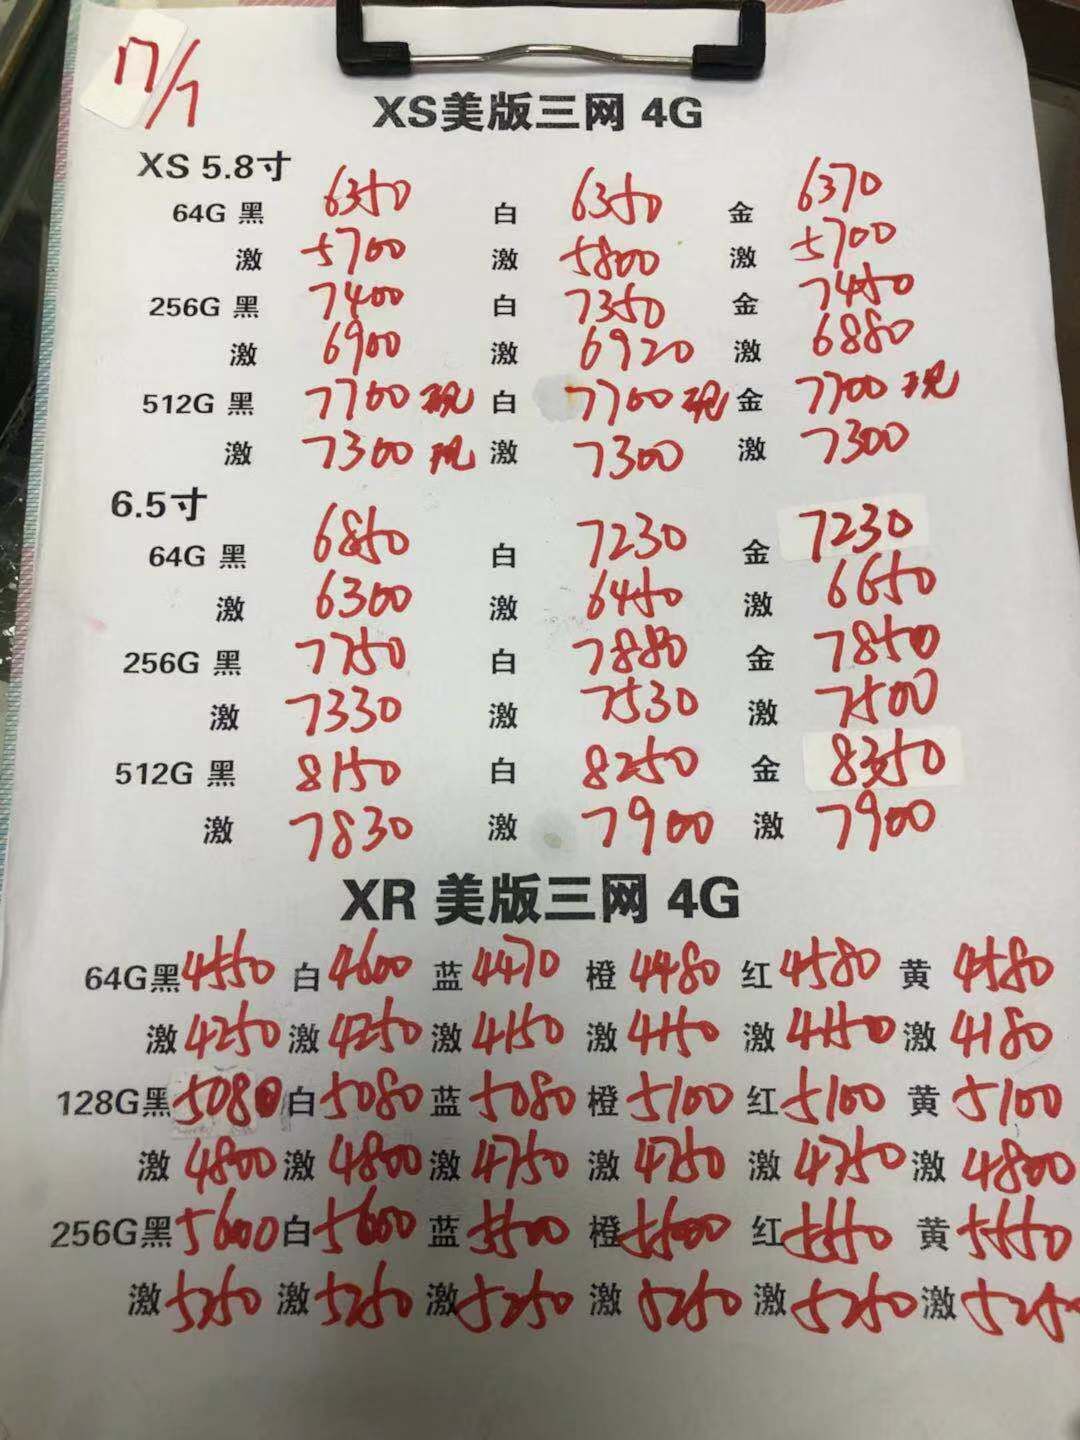 17/7
XS美版三网 4G
XS 5.8寸
64G 黑 6350 白 6350 金 6370
激 5700 激 5800 激 5700
256G 黑 7400 白 7350 金 7450
激 6900 激 6920 激 6880
512G 黑 7700 现 白 7700 现 金 7700 现
激 7300 现 激 7300 激 7300
6.5寸
64G 黑 6850 白 7230 金 7230
激 6300 激 6450 激 6650
256G 黑 7750 白 7880 金 7850
激 7330 激 7530 激 7500
512G 黑 8150 白 8250 金 8350
激 7830 激 7900 激 7900
XR 美版三网 4G
64G黑 4550 白 4600 蓝 4470 橙 4480 红 4580 黄 4580
激 4250 激 4250 激 4150 激 4150 激 4150 激 4180
128G黑 5080 白 5080 蓝 5080 橙 5100 红 5100 黄 5100
激 4800 激 4800 激 4750 激 4750 激 4750 激 4800
256G黑 5600 白 5600 蓝 5500 橙 5500 红 5550 黄 5550
激 5250 激 5250 激 5250 激 5250 激 5250 激 5250